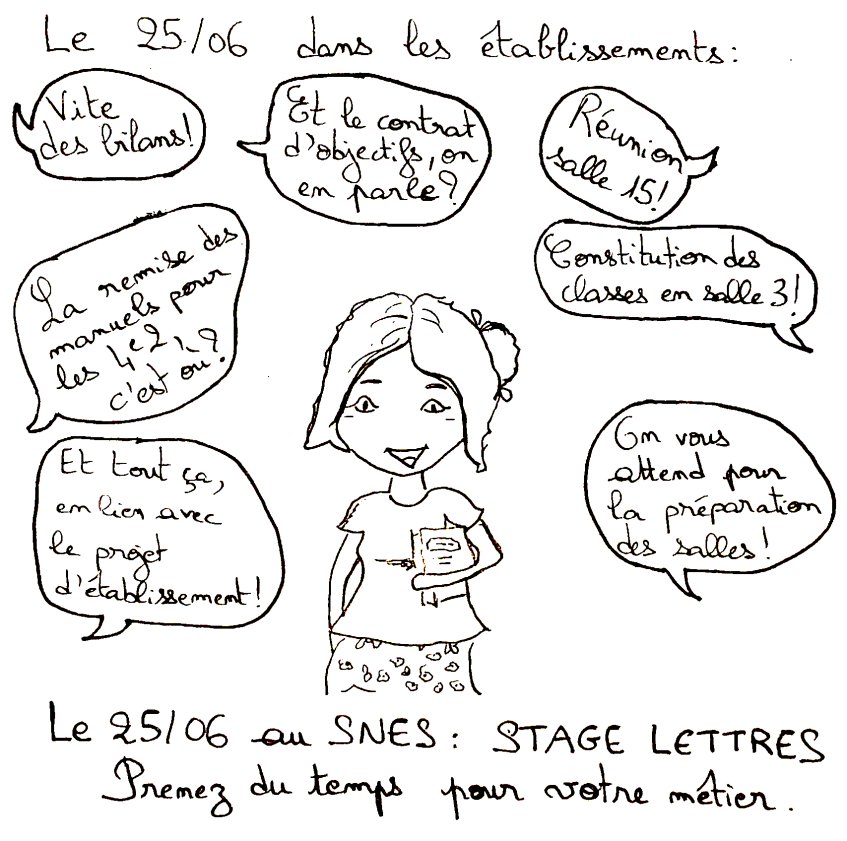 Le 25/06 dans les établissements:
Vite
des bilans!
Et le contrat
d'objectifs, on
en parle?
Réunion
salle 15!
La remise des
manuels pour
les 4e2,
c'est où?
Constitution des
classes en salle 3!
Et tout ça,
en lien avec
le projet
d'établissement!
On vous
attend pour
la préparation
des salles!
Le 25/06 au SNES: STAGE LETTRES
Prenez du temps pour votre métier.